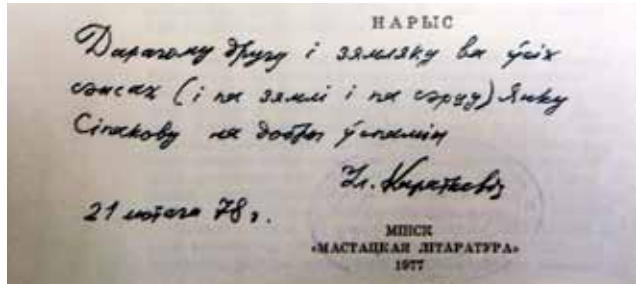 НАРЫС
Дарагому другу і земляку ва ўсіх
сэнсах (і па зямлі і па сэрцу) Янку
Сіпакову на добры ўспамін
Ул. Караткевіч
21 лютага 78 г.
МІНСК
«МАСТАЦКАЯ ЛІТАРАТУРА»
1977